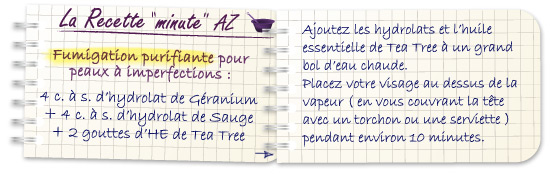 La Recette "minute" AZ
Fumigation purifiante pour
peaux à imperfections :
4 c. à s. d'hydrolat de Géranium
+ 4 c. à s. d'hydrolat de Sauge
+ 2 gouttes d'HE de Tea Tree
Ajoutez les hydrolats et l'huile
essentielle de Tea Tree à un grand
bol d'eau chaude.
Placez votre visage au dessus de la
vapeur ( en vous couvrant la tête
avec un torchon ou une serviette )
pendant environ 10 minutes.